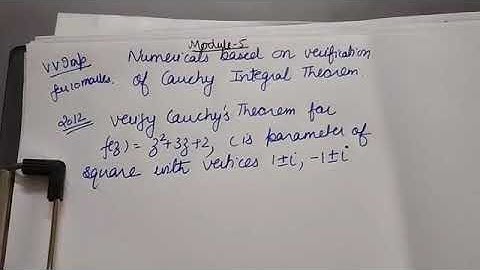 Module-5
V.V Imp Numericals based on verification
for 10 marks. of Cauchy Integral Theorem
2012 Verify Cauchy's Theorem for
f(z) = z²+3z+2, C is parameter of
square with vertices 1±i, -1±i